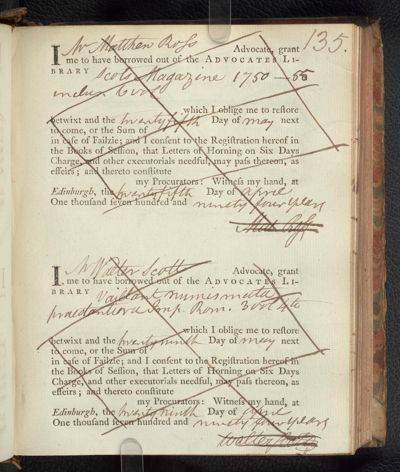 135.
I Mr Matthew Ross Advocate, grant
me to have borrowed out of the ADVOCATES LI-
BRARY Scots Magazine 1750 — 55
inclus. 6 vol
which I oblige me to restore
betwixt and the twenty fifth Day of May next
to come, or the Sum of
in case of Failzie; and I consent to the Registration hereof in
the Books of Session, that Letters of Horning on Six Days
Charge, and other executorials needful, may pass thereon, as
effeirs; and thereto constitute
my Procurators: Witness my hand, at
Edinburgh, the twenty fifth Day of April
One thousand seven hundred and ninety four years
Matt. Ross
I Mr Walter Scott Advocate, grant
me to have borrowed out of the ADVOCATES LI-
BRARY Vaillant numismata
praestantiora Imp. Rom. 3 vol 4to
which I oblige me to restore
betwixt and the twenty ninth Day of May next
to come, or the Sum of
in case of Failzie; and I consent to the Registration hereof in
the Books of Session, that Letters of Horning on Six Days
Charge, and other executorials needful, may pass thereon, as
effeirs; and thereto constitute
my Procurators: Witness my hand, at
Edinburgh, the twenty ninth Day of April
One thousand seven hundred and ninety four years
Walter Scott